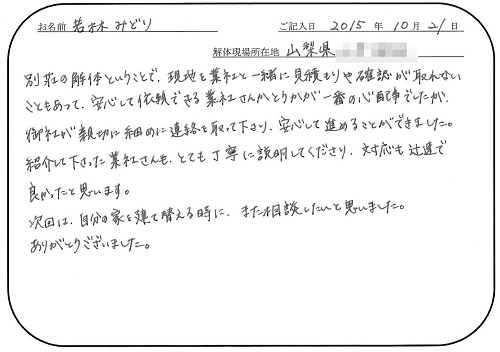 お名前 若林 みどり ご記入日 2015 年 10 月 21 日
解体現場所在地 山梨県
別荘の解体ということで、現地を業社と一緒に見積もりや確認が取れない
こともあって、安心して依頼できる業社さんかどうかが一番の心配事でしたが、
御社が親切に細めに連絡を取って下さり、安心して進めることができました。
紹介して下さった業社さんも、とても丁寧に説明してくださり、対応も迅速で
良かったと思います。
次回は、自分の家を建て替える時に、また相談したいと思いました。
ありがとうございました。